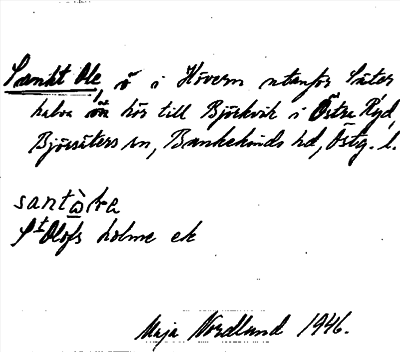 Sankt Ole, ö i Hövern utanför Säter
halva ön hör till Björkvik i Östra Ryd,
Bjärsäters sn, Bankekinds hd, Östg. l.
santὼla
St Olofs holme ek
Maja Nordlund 1946.